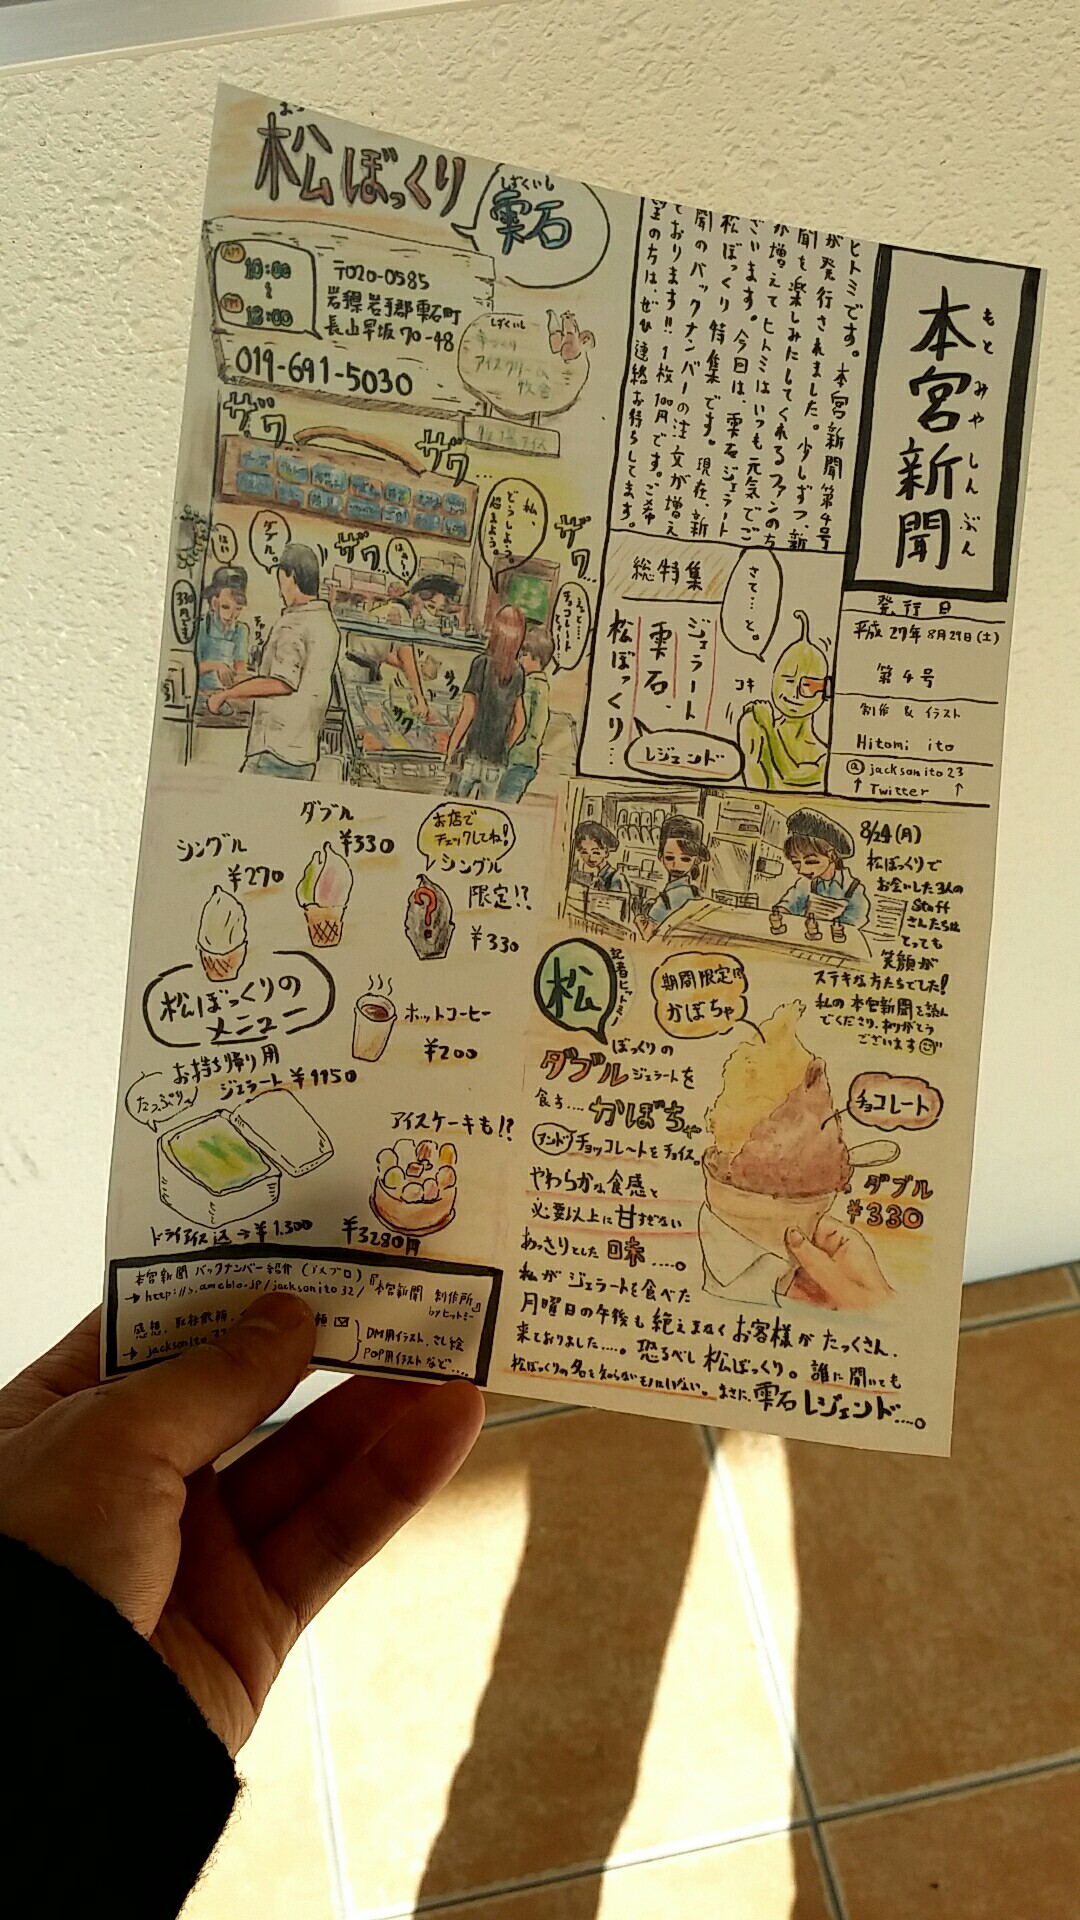 本宮新聞
もとみやしんぶん
発行日
平成27年8月29日(土)
第4号
創作 & イラスト
Hitomi ito
@jacksonito23
↑Twitter↑
ヒトミです。本宮新聞第4号
が発行されました。少しずつ、新
聞を楽しみにしてくれるファンの方
が増えてヒトミはいつも元気でご
ざいます。今回は、雫石ジェラート
松ぼっくり特集です。現在、新
聞のバックナンバーの注文が増え
ております!!1枚100円です。ご希
望の方は、ぜひ連絡お待ちしてます。
総特集
ジェラート
雫石、
松ぼっくり…
レジェンド
さて…と。
コキ
松ぼっくり
しずくいし
雫石
AM
10:00
PM
18:00
〒020-0585
岩手県岩手郡雫石町
長山早坂70-48
019-691-5030
しずくいし
手づくり
アイスクリーム
牧舎
ザワ
ザワ…
ザワ…
ザワ…
はい
ダブル。
はぁーい
私、
どうしよう。
悩まよう。
えっと…
チョコレートと…
330円です
サク
サク
シングル
¥270
ダブル
¥330
お店で
チェックしてね!
シングル
限定!?
?
¥330
松ぼっくりの
メニュー
ホットコーヒー
¥200
お持ち帰り用
ジェラート ¥1150
たっぷり
ドライアイス込→¥1,300
アイスケーキも!?
¥3280円
8/24(月)
松ぼっくりで
お会いした3人の
Staff
さんたちは
とっても
笑顔が
ステキな方たちでした!
私の本宮新聞を読ん
でくださり、ありがとう
ございます
記者ヒトミノ
松
ぼっくりの
ダブルジェラートを
食す….かぼちゃ
アンド チョッコレートをチョイス。
期間限定!!
かぼちゃ
チョコレート
ダブル
¥330
やわらかな食感と
必要以上に甘すぎない
あっさりとした日味….。
私がジェラートを食べた
月曜日の午後も絶えまなくお客様がたっくさん、
来ておりました….。恐るべし松ぼっくり。誰に聞いても
松ぼっくりの名を知らないモノはいない。まさに、雫石レジェンド….。
本宮新聞バックナンバー紹介(アメブロ)『本宮新聞 制作所』
→http://s.ameblo.jp/jacksonito32/ byヒトミー
感想、取材依頼、
→jacksonito
DM用イラスト、さし絵
POP用イラストなど….